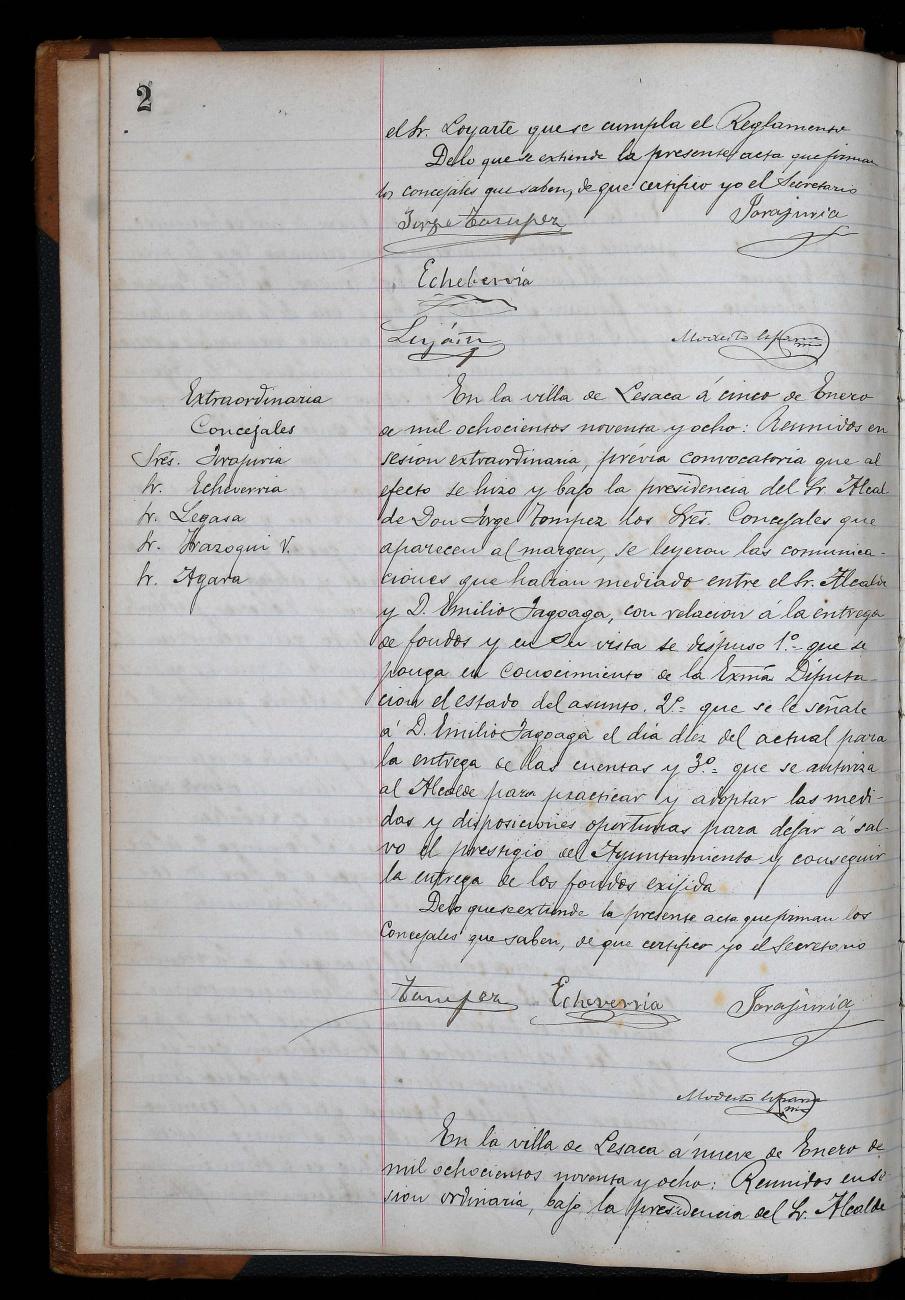 2
el Sr. Loyarte que se cumpla el Reglamento
De lo que se extiende la presente acta que firman
los concejales que saben, de que certifico yo el Secretario
Jorge Tompez Irazuria
Echeberría
Luján Modesto
Extraordinaria
Concejales
Sres. Irajuria
Sr. Echeverria
Sr. Legasa
Sr. Irazoqui V.
Sr. Agara
En la villa de Lesaca á cinco de Enero
de mil ochocientos noventa y ocho: Reunidos en
sesion extraordinaria, prévia convocatoria que al
efecto se hizo y bajo la presidencia del Sr. Alcal-
de Don Jorge Tompez los Sres. Concejales que
aparecen al margen, se leyeron las comunica-
ciones que habian mediado entre el Sr. Alcalde
y D. Emilio Jagoaga, con relacion á la entrega
de fondos y en su vista se dispuso 1.º que se
ponga en conocimiento de la Exmâ Diputa-
cion el estado del asunto. 2.º que se le señale
á D. Emilio Jagoaga el dia diez del actual para
la entrega de las cuentas y 3.º que se autoriza
al Alcalde para practicar y adoptar las medi-
das y disposiciones oportunas para dejar á sal-
vo el prestigio del Ayuntamiento y conseguir
la entrega de los fondos exijida
De lo que se extiende la presente acta que firman los
Concejales que saben, de que certifico yo el Secretario
Tompez Echeverria Irajuria
Modesto
En la villa de Lesaca á nueve de Enero de
mil ochocientos noventa y ocho: Reunidos en se
sion ordinaria, bajo la presidencia del Sr. Alcalde